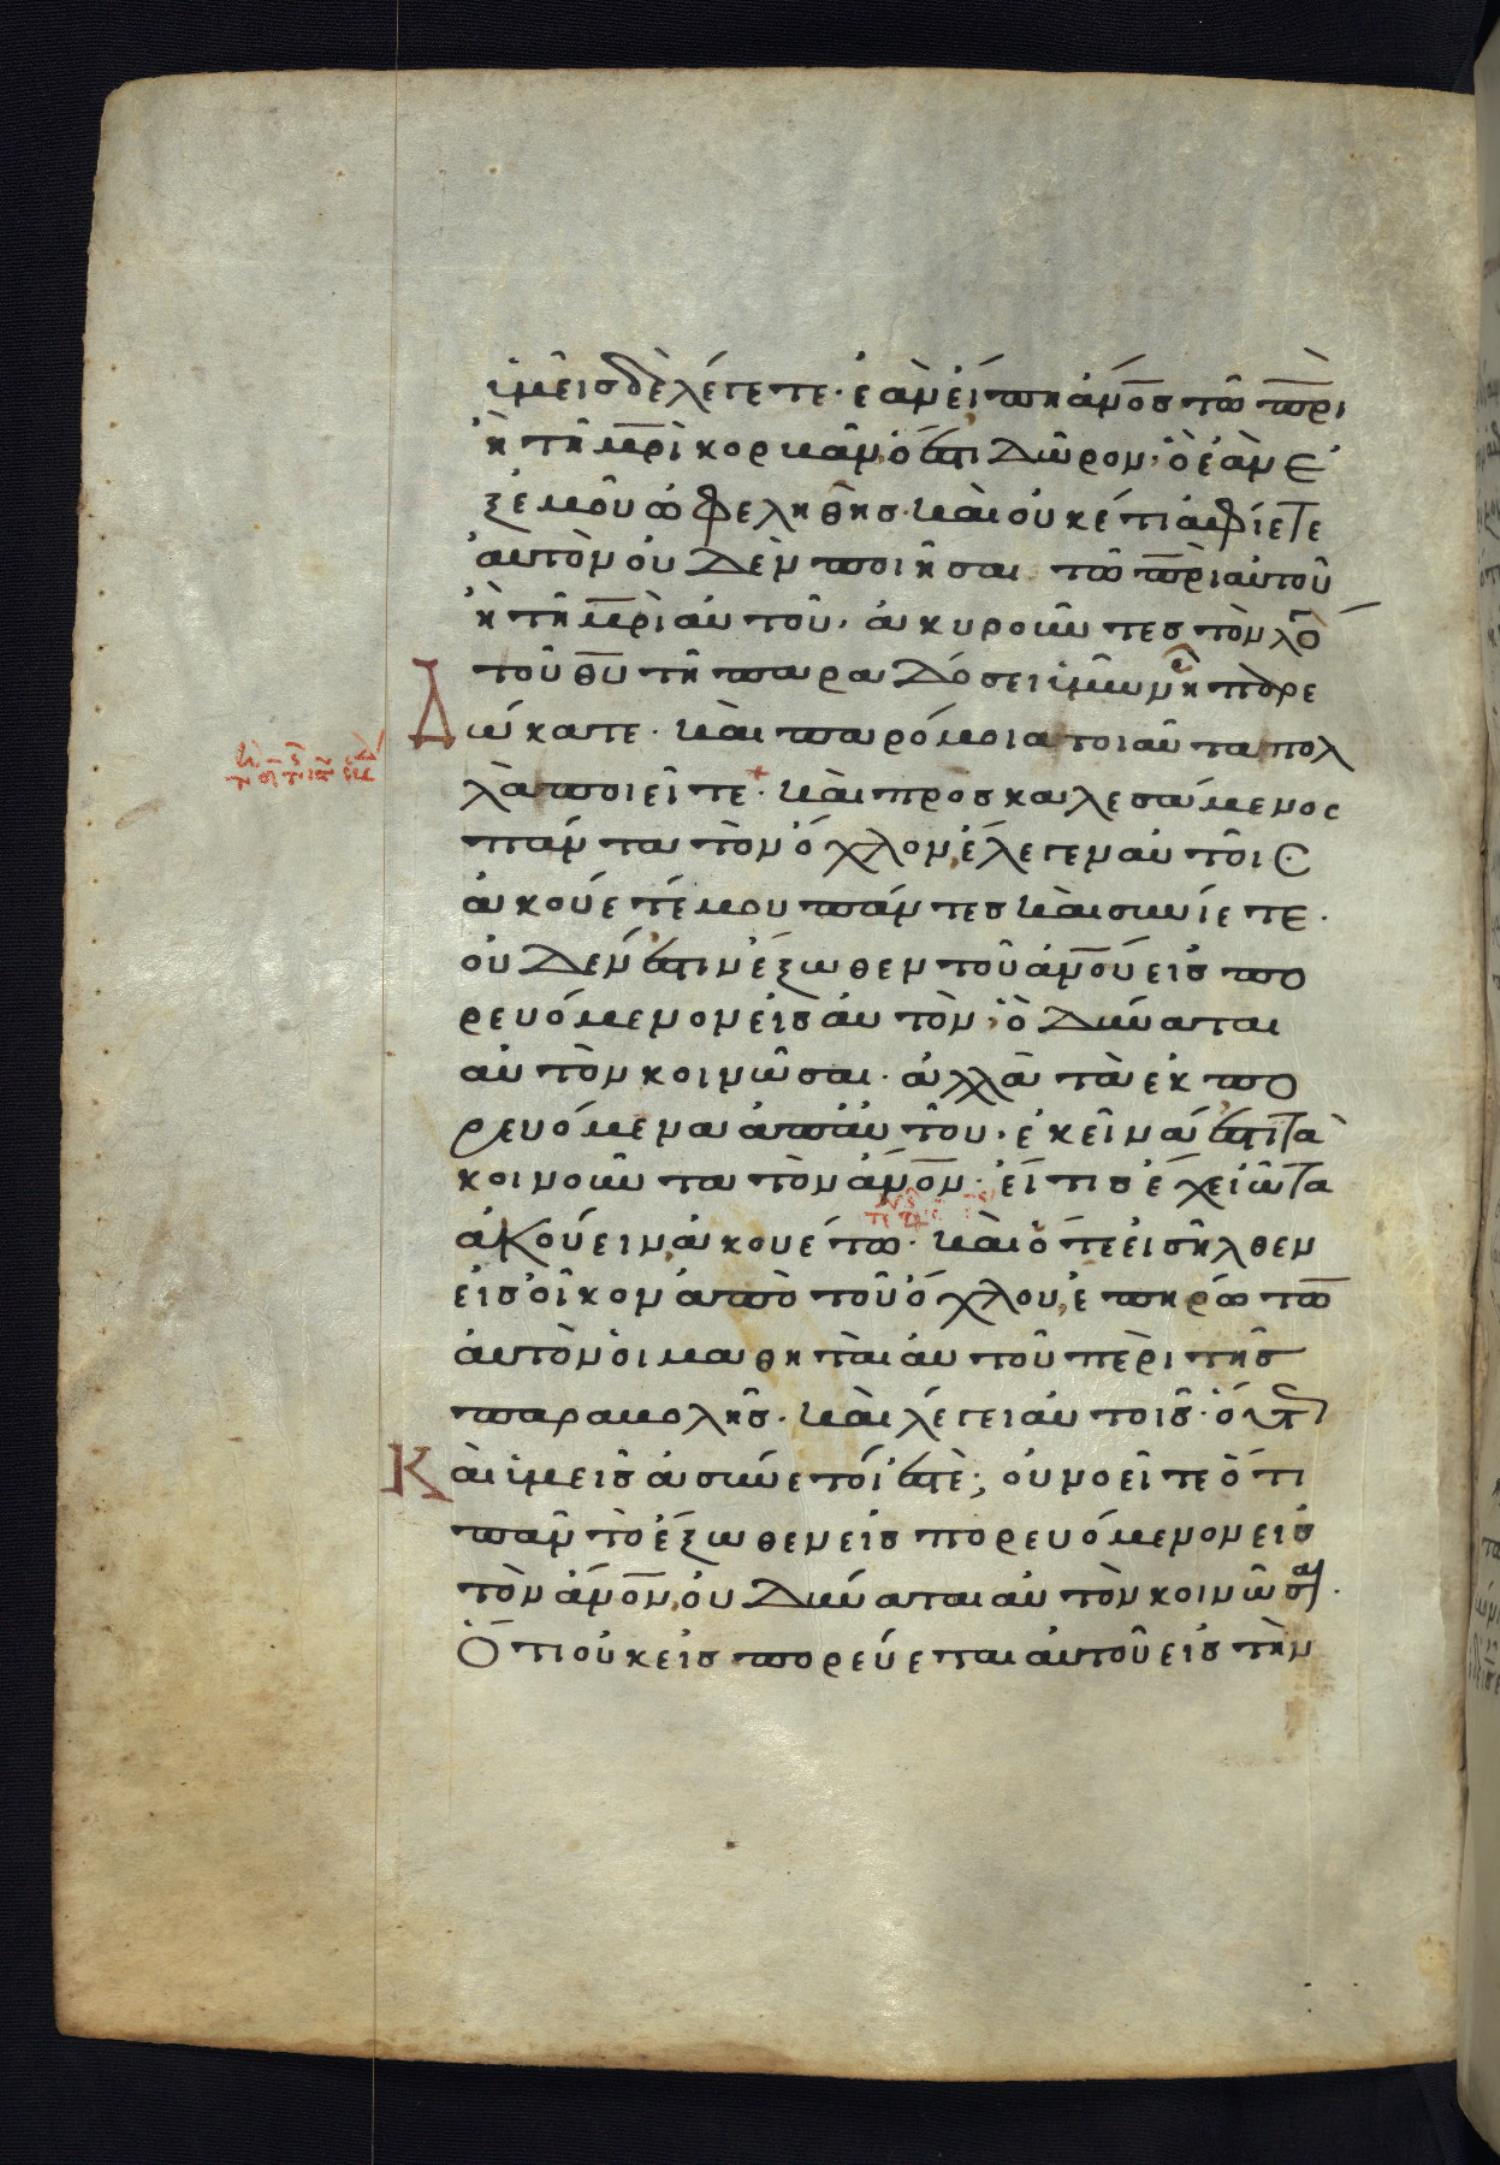 ὑμεῖς δὲ λέγετε· ἐὰν εἴπη ἄν̅ο̅ς τῶ π̅ρ̅ι
ἢ τῆ μ̅ρ̅ὶ κορκᾶν ὅ ἐστι δῶρον, ὃ ἐὰν ἐ
ξ ἐμοῦ ὠφεληθῆς· καὶ οὐκέτι ἀφίετε
ἀυτὸν οὐδὲν ποιῆσαι τῶ π̅ρ̅ὶ ἀυτοῦ
ἢ τῆ μ̅ρ̅ὶ ἀυτοῦ, ἀκυροῦντες τὸν λό
τοῦ θ̅υ̅ τῆ παραδόσει ὑμῶν ἣ παρε
δώκατε· καὶ παρόμοια τοιαῦτα πολ
λὰ ποιεῖτε· καὶ προσκαλεσάμενος
πάντα τὸν ὄχλον, ἔλεγεν αὐτοῖς
ἀκούετέ μου πάντες καὶ συνίετε·
οὐδέν ἐστιν ἔξωθεν τοῦ ἀν̅ο̅ύ εἰσπο
ρευόμενον εἰς ἀυτὸν, ὃ δύναται
αὐτὸν κοινῶσαι· ἀλλὰ τὰ ἐκπο
ρευόμενα ἀπ' ἀυτοῦ, ἐκεῖνά ἐστι τὰ
κοινοῦντα τὸν ἄν̅ο̅ν· εἴ τις ἔχει ὦτα
ἀκούειν, ἀκουέτω· καὶ ὅτε εἰσῆλθεν
εἰς οἶκον ἀπὸ τοῦ ὄχλου, ἐπηρώτω
ἀυτὸν οἱ μαθηταὶ ἀυτοῦ περὶ τῆς
παραβολῆς· καὶ λέγει ἀυτοῖς· οὕτ
Καὶ ὑμεῖς ἀσύνετοί ἐστὲ; οὐ νοεῖτε ὅτι
πᾶν τὸ ἔξωθεν εἰσπορευόμενον εἰς
τὸν ἄν̅ο̅ν, οὐ δύναται αὐτὸν κοινῶσαι·
Ὅτι οὐκ εἰσπορεύεται ἀυτοῦ εἰς τὴν